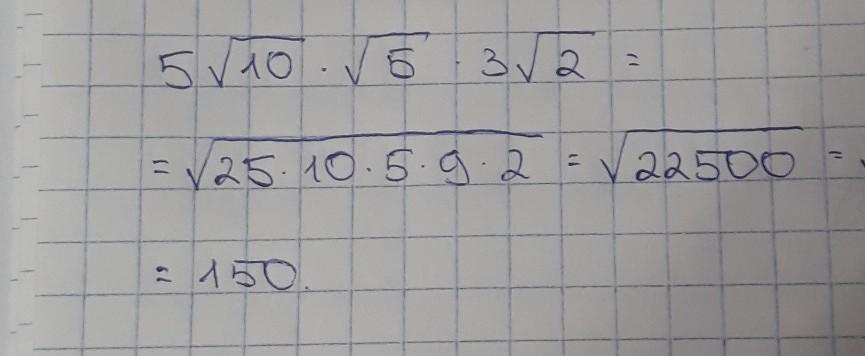 5√10 · √5 · 3√2 =
= √25·10·5·9·2 = √22500 =
= 150.